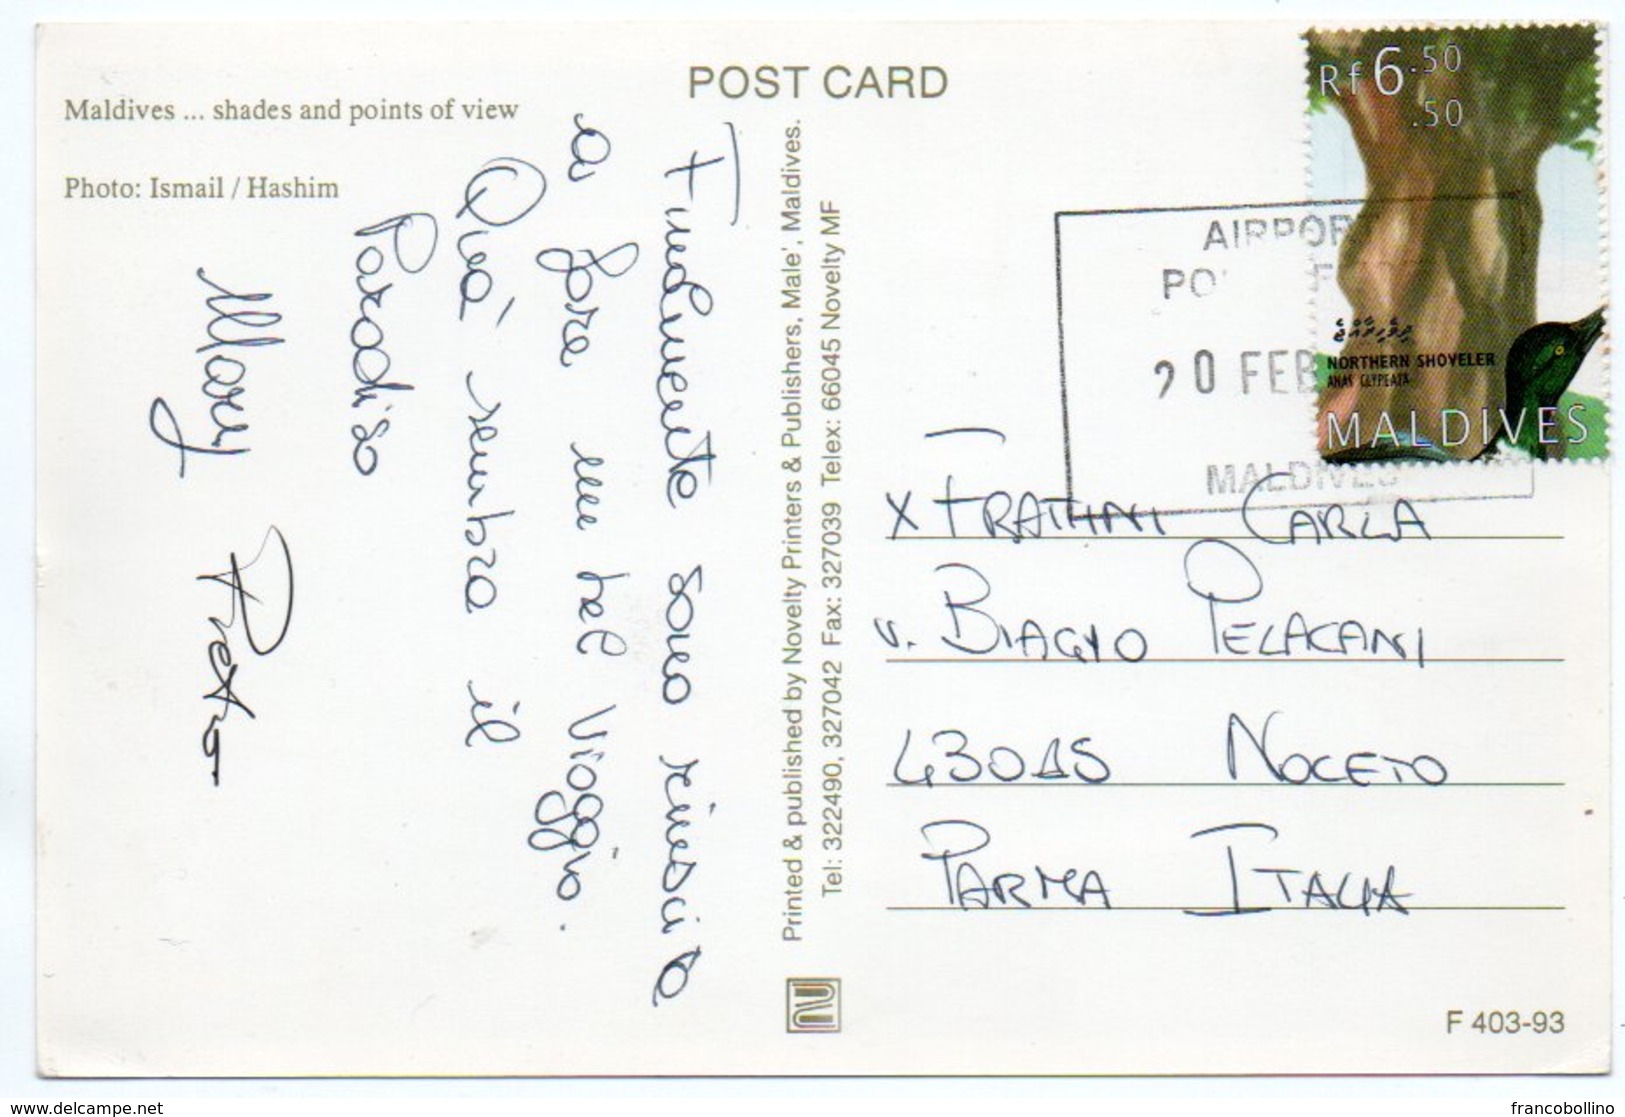 Maldives ... shades and points of view
Photo: Ismail / Hashim
POST CARD
Finalmente sono riuscita
a fare un bel Viaggio.
Quà sembra il
Paradiso
Mary Pietro
Printed & published by Novelty Printers & Publishers, Male', Maldives.
Tel: 322490, 327042 Fax: 327039 Telex: 66045 Novelty MF
Rf 6.50
.50
NORTHERN SHOVELER
ANAS CLYPEATA
MALDIVES
AIRPOR
PO
20 FEB
MALDIVES
X FRATTINI CARLA
v. BIAGIO PELACANI
43015 NOCETO
PARMA ITALIA
F 403-93
www.delcampe.net
francobollino